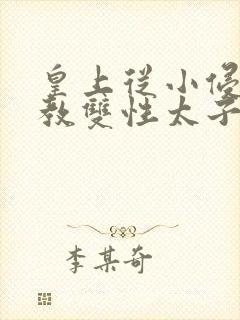 皇上从小侵
教雙性太子
李某奇